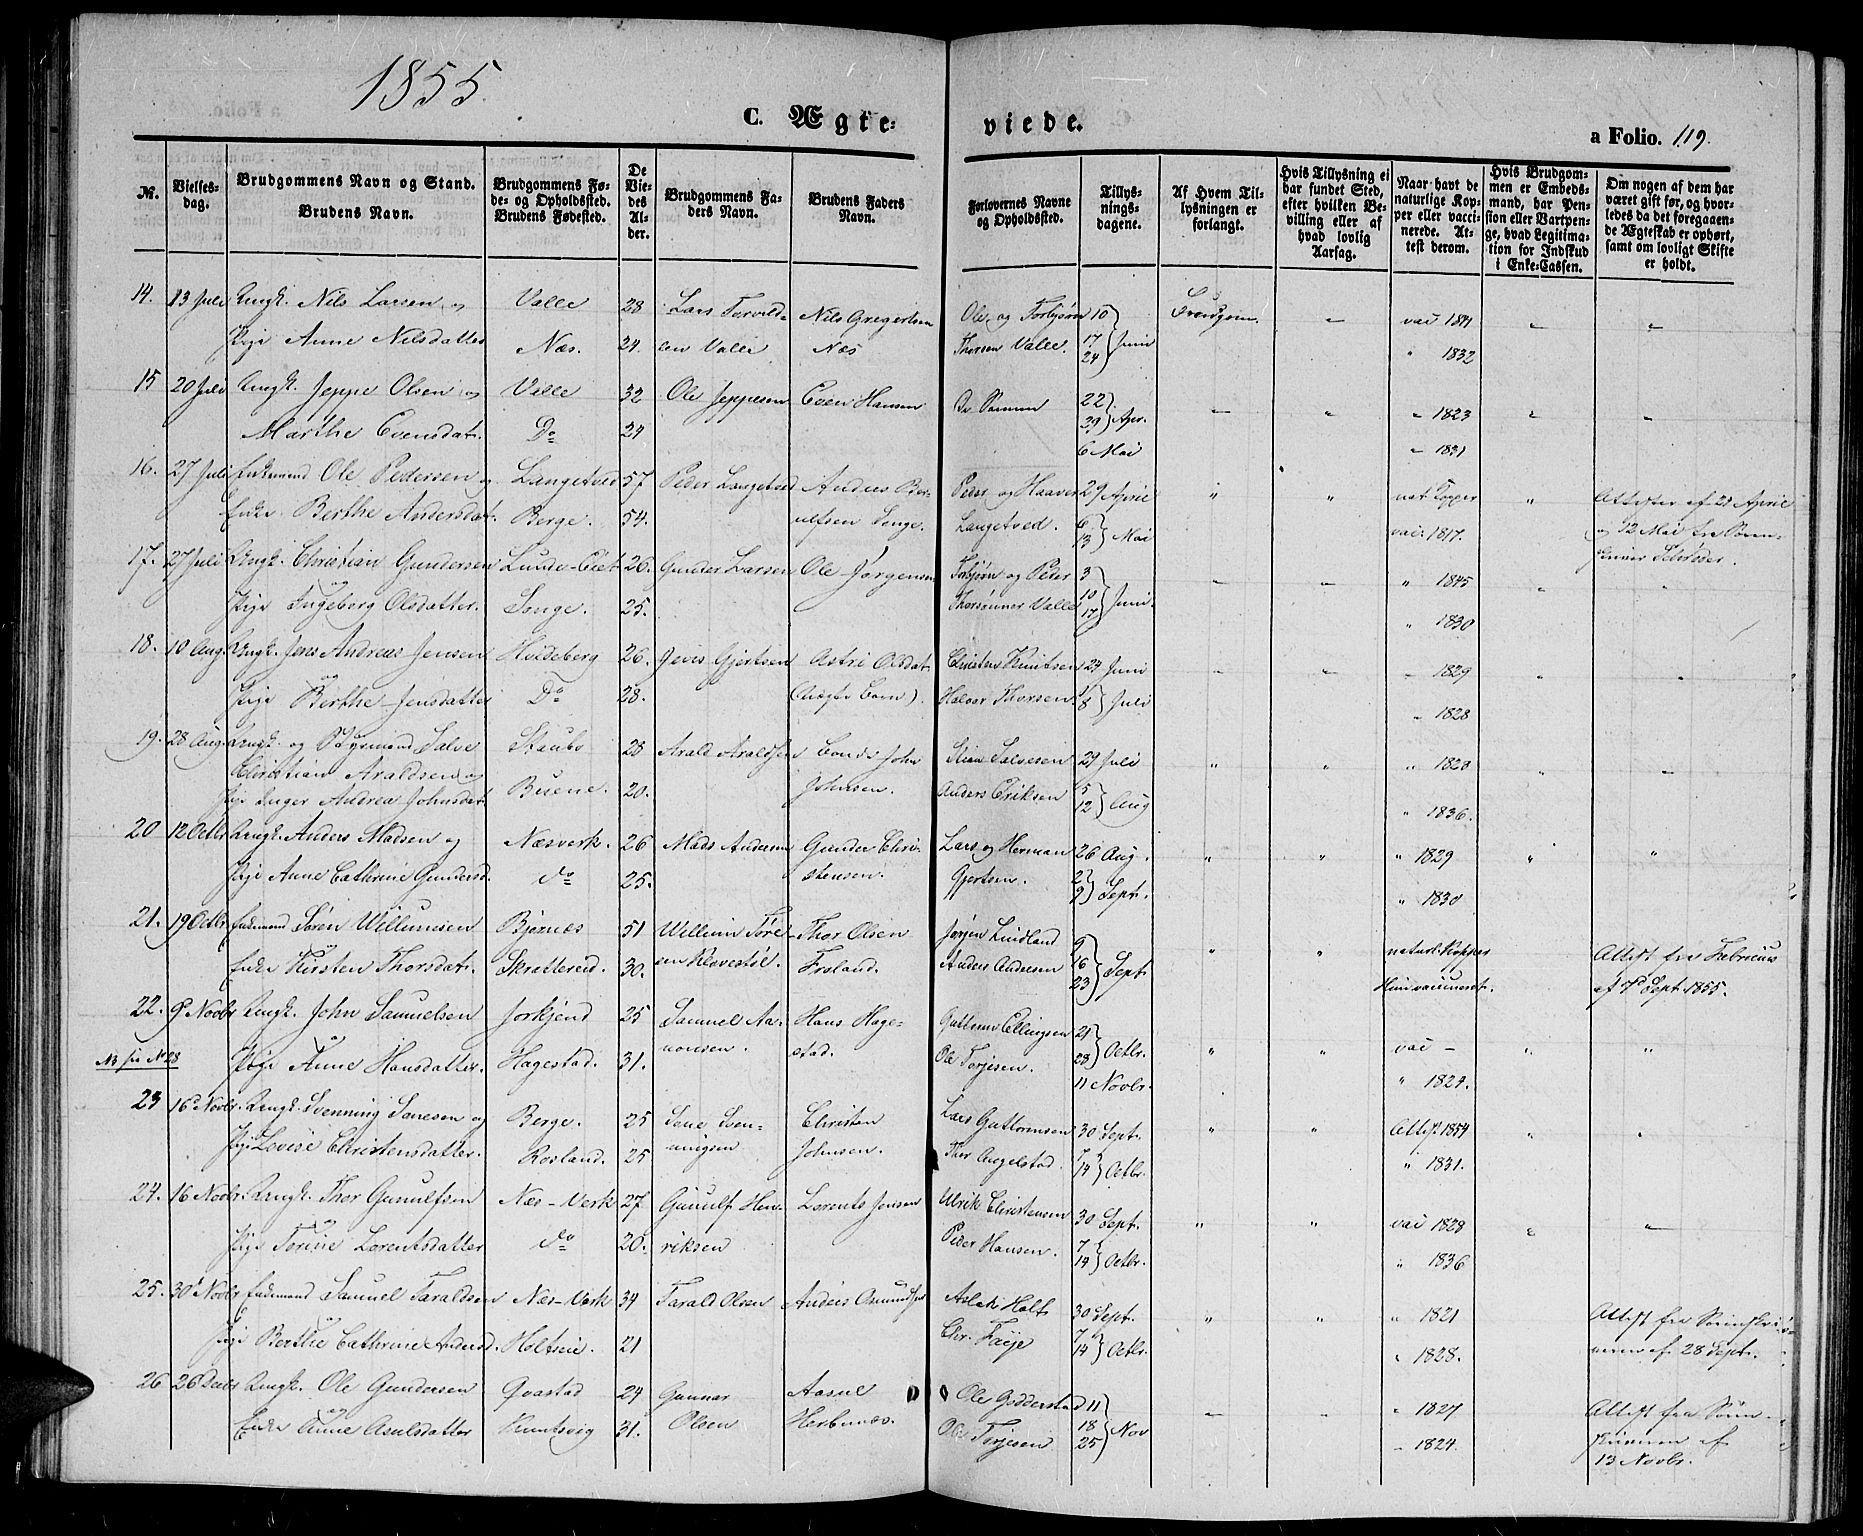 1855.
C. Ægte-
viede.
a Folio. 119.
№.
Vielses-
dag.
Brudgommens Navn og Stand.
Brudens Navn.
Brudgommens Fø-
de- og Opholdssted.
Brudens Fødested.
De
Vie-
des
Al-
der.
Brudgommens Fa-
ders Navn.
Brudens Faders
Navn.
Forlovernes Navne
og Opholdssted.
Tillys-
nings-
dagene.
Af Hvem Til-
lysningen er
forlangt.
Hvis Tillysning ei
har fundet Sted,
efter hvilken Be-
villing eller af
hvad lovlig
Aarsag.
Naar havt de
naturlige Kop-
per eller vacci-
nerede. At-
test derom.
Hvis Brudgom-
men er Embeds-
mand, har Pen-
sion eller Vartpen-
ge, hvad Legitima-
tion for Indskud
i Enke-Cassen.
Om nogen af dem har
været gift før, og hvor-
ledes da det foregaaen-
de Ægteskab er ophørt,
samt om lovligt Skifte
er holdt.
14. 13 Juli Ungk. Nils Larsen og Valle 28 Lars Torvild- Nils Gregertsen Ole og Torbjørn 10 Brudgom. " vac 1841 " "
Pige Anne Nilsdatter Næs. 24. sen Valle Næs Thorsen Valle. 17 24 Juni " 1832
15 20 Juli Ungk. Jeppe Olsen og Valle 32 Ole Jeppesen Even Hansen De Samme 22 " " " 1823 " "
Marthe Evensdat. Do 24 29 Apr.
6 Mai " 1831
16. 27 Juli Enkemand Ole Pedersen og Langetved 57. Peder Langetved Anders Ber- Peder og Haaver 29 April " " nat. Copper " Attester af 21 April
Enke Berthe Andersdat. Berge. 54. ulfsen Songe. Langetved. 6 13 Mai vac. 1817. og 12 Mai fra Soren-
17. 27 Juli Ungk. Christian Gundersen Lunde-Eiet 26. Gunder Larsen Ole Jørgensen Torbjørn og Peder 3 " " " 1845 " "
og
Pige Ingeborg Olsdatter. Songe. 25. Thorsønner Valle 10 17 Juni. " 1830
18. 10 Aug. Ungk. Jens Andreas Jensen Hvideberg 26. Jens Gjertsen Astri Olsdat. Christen Knutsen 24 Juni " " " 1829 " "
og
Pige Berthe Jensdatter Do 28. (Uægte Barn). Halvor Thorsen. 1 8 Juli " 1828
19. 28 Aug. Ungk. og Styrmand Salve Staubo 28 Arald Araldsen Bonde John Stian Salvesen 29 Juli " " " 1828 " "
Christian Araldsen og
Pige Inger Andrea Johnsdat. Buene. 20. Johnsen. Anders Eriksen 5 12 Aug " 1836.
20 12 Octbr Ungk. Anders Madsen og Næsverk. 26 Mads Andersen Gunder Chri- Lars og Herman 26 Aug. " " " 1829 " "
Pige Anne Cathrine Gundersd. do 25. stensen. Gjertsen. 2 9 Sept. " 1830
21. 19 Octbr Enkemand Søren Willumsen Bjørnæs 51 Willum Tore- Thor Olsen Jørgen Lindland 9 " " naturl. Kopper Attest fra
og
Enke Kirsten Thorsdat. Skrattereid. 30. sen Klovestøl. Froland. Anders Andersen 16 23 Sept. Hun vaccineret. af 7 Sept. 1855.
22. 9 Novbr Ungk. John Samuelsen Jorkjend 25 Samuel Aa- Hans Hage- Guttorm Ellingsen 21 " " vac - " "
og
NB før No 28 Pige Anne Hansdatter. Hagestad. 31. nonsen. stad. Ole Torjesen. 28 Octbr.
11 Novbr. " 1824.
23 16 Novbr. Ungk. Svenning Sørensen og Berge. 25 Christen Lars Guttormsen 30 Sept. " " Attest. 1854 " "
Pige Lovise Christensdatter. Rosland. 25 Johnsen. Thor Angelstad. 7 14 Octbr. " 1831.
24. 16 Novbr. Ungk. Thor Gunulfsen Næs-Verk 27 Gunulf Hen- Lorents Jensen Ulrik Christensen 30 Sept. " " vac 1828 " "
og
Pige Torine Lorentsdatter do 20. riksen Peder Hansen. 7 14 Octbr. " 1836
25. 30 Novbr Enkemand Samuel Taraldsen Næs-Verk 34 Tarald Olsen Anders Osmundsen Aslak Holt 30 Sept. " " " 1821 Attest fra Sorenskri-
og
Pige Berthe Cathrine Andersd. Holtseie. 21 Chr. Frøje 7 14 Octbr. " 1828. veren af 28 Sept.
26 26 Decbr Ungk. Ole Gundersen Qvastad 24 Gunnar Aasul Ole Godderstad 11 " " " 1827 Attest fra Soren-
og
Enke Anne Asulsdatter Kruntsvig 31. Olsen Herbunæs. Ole Torjesen 18 25 Nov " 1824. skriveren af
13 Novbr.